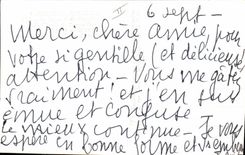 II 6 sept -
Merci, chère amie, pour
votre si gentille (et délicieuse)
attention - Vous me gâtez
vraiment ! et j'en suis
émue et confuse
Le mieux continue - Je vous
espère en bonne forme et